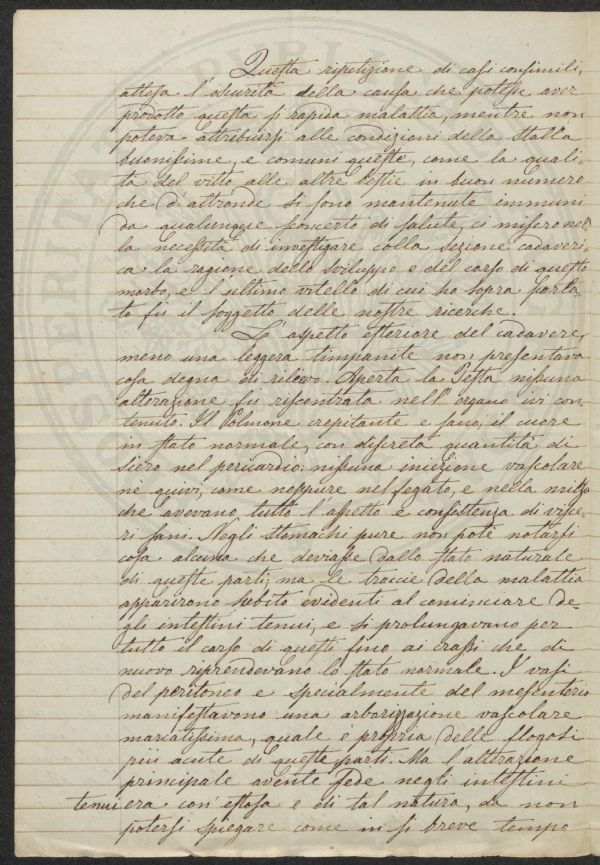 Questa ripetizione di casi consimili,
attesa l'oscurità della causa che potesse aver
prodotto questa sì rapida malattia, mentre non
poteva attribuirsi alle condizioni della stalla
buonissime, e comuni queste, come la quali-
tà del vitto alle altre bestie in buon numero
che d'altronde si sono mantenute immuni
da qualunque sconcerto di salute, ci misero nel-
la necessità di investigare colla sezione cadaveri-
ca la ragione dello sviluppo e del corso di questo
morbo, e l'ultimo vitello di cui ho sopra parla
to fu il soggetto delle nostre ricerche.
L'aspetto esteriore del cadavere,
meno una leggera timpanite non presentava
cosa degna di rilievo. Aperta la Testa nissuna
alterazione fu riscontrata nell'organo ivi con-
tenuto. Il Polmone crepitante e sano, il cuore
in stato normale, con discreta quantità di
siero nel pericardio: nissuna iniezione vascolare
nè quivi, come neppure nel fegato, e nella milza
che avevano tutto l'aspetto e consistenza di visce-
ri sani. Negli stomachi pure non potè notarsi
cosa alcuna che deviasse dallo stato naturale
di queste parti; ma le traccie della malattia
apparirono subito evidenti al cominciare de-
gli intestini tenui, e si prolungavano per
tutto il corso di questi fino ai crassi che di
nuovo riprendevano lo stato normale. I vasi
del peritoneo e specialmente del mesenterio
manifestavono una arborizzazione vascolare
marcatissima, quale è propria delle flogosi
più acute di queste parti. Ma l'alterazione
principale avente sede negli intestini
tenui era così estesa e di tal natura, da non
potersi spiegare come in sì breve tempo